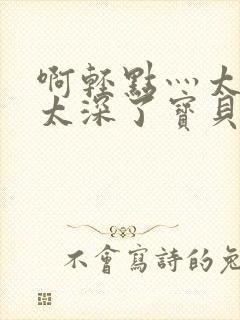 啊輕點灬太
太深了寶貝
不會寫詩的兔